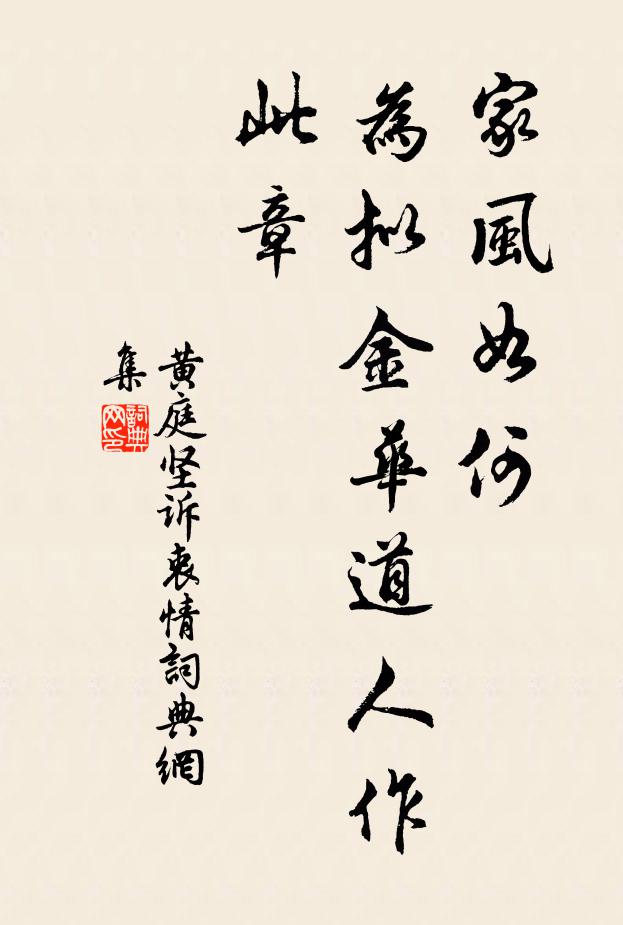 家風如何
為拟金華道人作
此章
黄庭坚诉衷情詞典網
集
詞典網印